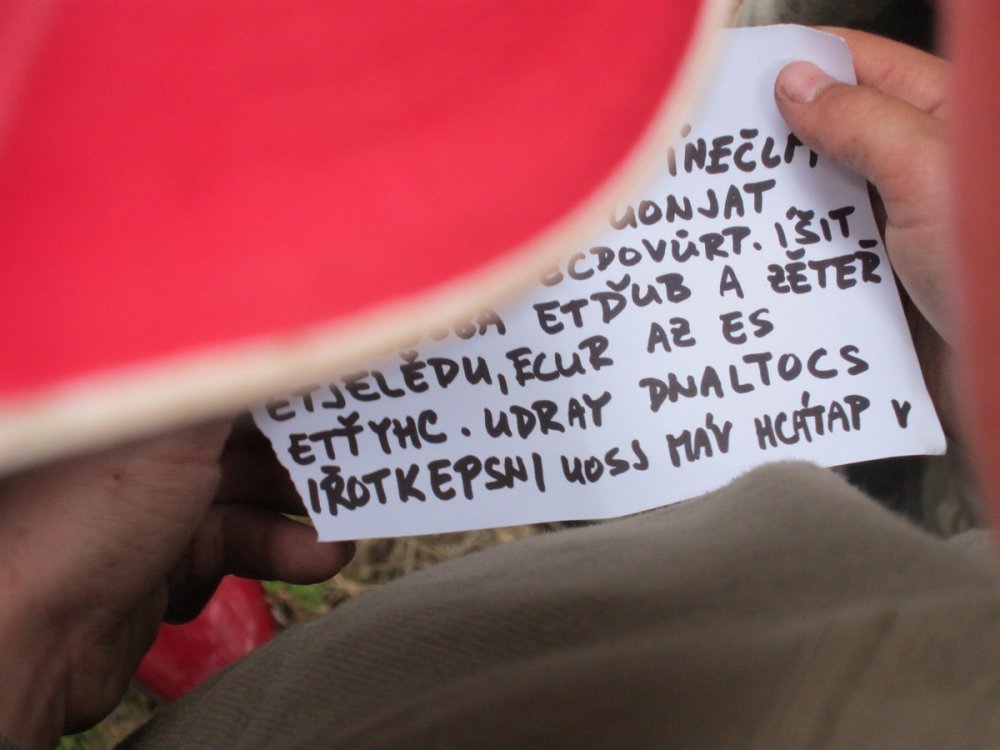 ÍNEČLM
UONJAT
ECDOVŮRP. ÍŠIT
ETĎUB A ZĚTEŘ
ETJELĚDU, ECUR AZ ES
ETŤYHC. UDRAY DNALTOCS
IŘOTKEPSNI UOSJ MÁV HCÁTAP V